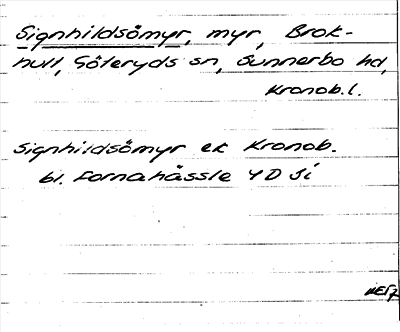 Signhildsömyr, myr, Brok-
hult, Göteryds sn, Sunnerbo hd,
Kronob.l.
Signhildsömyr ek Kronob.
bl. Fornahässle 4D Si